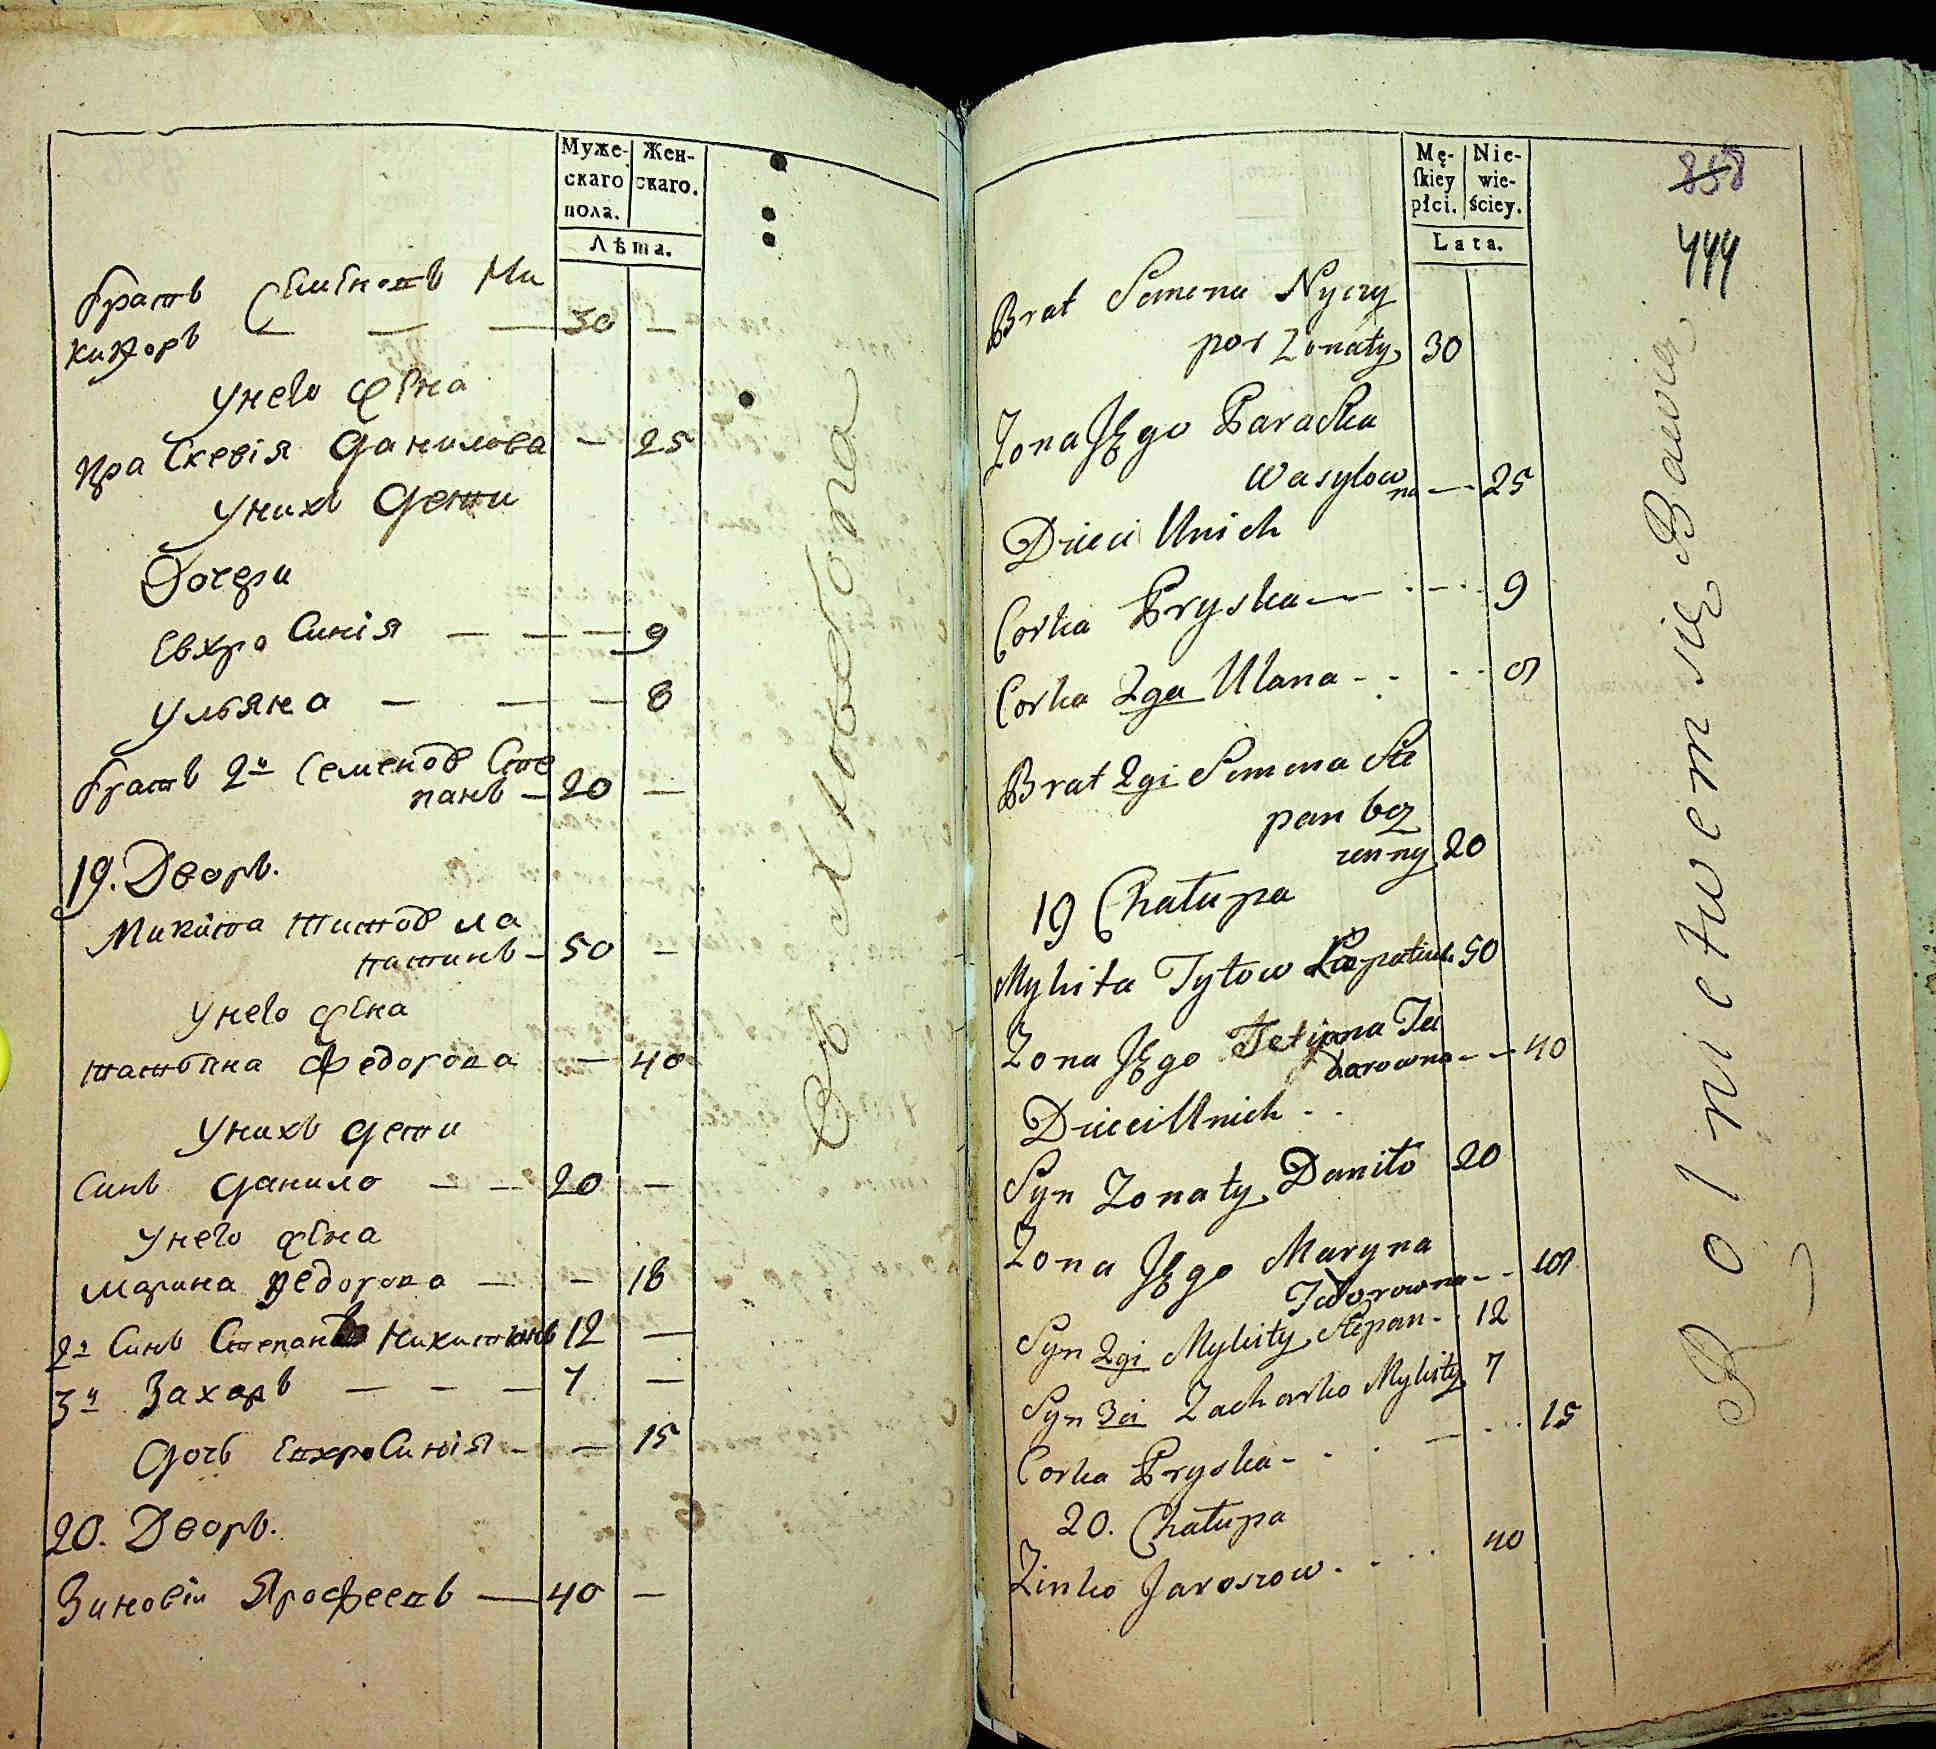 Муже-
скаго
пола.
Жен-
скаго.
Лѣта.
братъ Семеновъ Ми
кифоръ — — — 30 —
унего жена
праскевія Данилова — 25
унихъ дети
Дочери
Евхросинія — — — 9
Ульяна — — — 8
братъ 2й Семеновъ Сте
панъ — 20 —
19. Дворъ.
Микита титовъ ла
патинъ — 50 —
унего жена
татьяна Федорова — 40
унихъ дети
Синъ Данило — — 20 —
унего жена
марина Федорова — — 18
2й Синъ Степанъ Никитинъ 12 —
3й Захаръ — — — 7 —
Дочь Евхросинія — — 15
20. Дворъ.
Зиновій Ярофеевъ — 40 —
Mę-
skiey
płci.
Nie-
wie-
ściey.
Lata.
858
444
Brat Semena Nyczy
por Zonaty 30
Zona Jego Paraska
Wasylow
na — 25
Dzieci Unich
Corka Pryska — . — . 9
Corka 2ga Ulana - . - - 8
Brat 2gi Semena Ste
pan bez
zenny 20
19 Chałupa
Mykita Tytow Łopatiuk 50
Zona Jego Tetjana Te
dorowna - - 40
Dzieci Unich - -
Syn Zonaty Daniło 20
Zona Jego Maryna
Tedorowna - - 18
Syn 2gi Mykity Stepan - 12
Syn 3ci Zacharko Mykity 7
Corka Pryska - . . — . . . 15
20. Chałupa
Zinko Jaroszow . . . . 40
Rolnictwem się Bawią